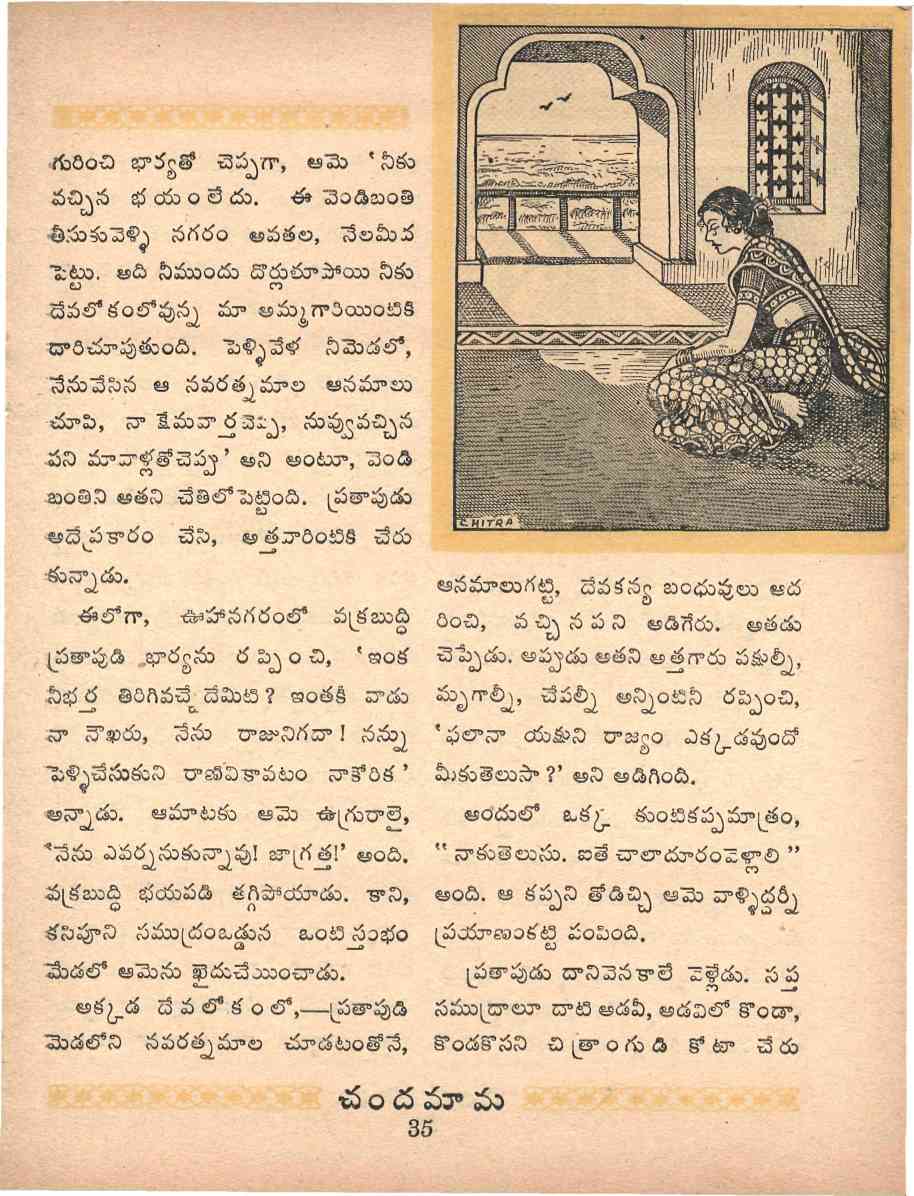 గురించి భార్యతో చెప్పగా, ఆమె ‘ నీకు
వచ్చిన భయంలేదు. ఈ వెండిబంతి
తీసుకువెళ్ళి నగరం అవతల, నేలమీద
పెట్టు. అది నీముందు దొర్లుచూపోయి నీకు
దేవలోకంలోవున్న మా అమ్మగారియింటికి
దారిచూపుతుంది. పెళ్ళివేళ నీమెడలో,
నేనువేసిన ఆ నవరత్నమాల ఆనమాలు
చూపి, నా క్షేమవార్తచెప్పి, నువ్వువచ్చిన
పని మావాళ్లతోచెప్పు’ అని అంటూ, వెండి
బంతిని ఆతని చేతిలోపెట్టింది. ప్రతాపుడు
ఆదేప్రకారం చేసి, అత్తవారింటికి చేరు
కున్నాడు.
ఈలోగా, ఊహానగరంలో వక్రబుద్ధి
ప్రతాపుడి భార్యను రప్పించి, ‘ ఇంక
నీభర్త తిరిగివచ్చేదేమిటి? ఇంతకీ వాడు
నా నౌఖరు, నేను రాజునిగదా! నన్ను
పెళ్ళిచేసుకుని రాణివికావటం నాకోరిక’
అన్నాడు. ఆమాటకు ఆమె ఉగ్రురాలై,
‘నేను ఎవర్ననుకున్నావు! జాగ్రత్త!’ అంది.
వక్రబుద్ధి భయపడి తగ్గిపోయాడు. కాని,
కసిపూని సముద్రంఒడ్డున ఒంటిస్తంభం
మేడలో ఆమెను ఖైదుచేయించాడు.
అక్కడ దేవలోకంలో,—ప్రతాపుడి
మెడలోని నవరత్నమాల చూడటంతోనే,
CHITRA
ఆనమాలుగట్టి, దేవకన్య బంధువులు ఆద
రించి, వచ్చినపని అడిగేరు. అతడు
చెప్పేడు. అప్పుడు అతని అత్తగారు పక్షుల్నీ,
మృగాల్నీ, చేపల్నీ అన్నింటినీ రప్పించి,
‘ఫలానా యక్షుని రాజ్యం ఎక్కడవుందో
మీకుతెలుసా?’ అని అడిగింది.
అందులో ఒక్క కుంటికప్పమాత్రం,
“ నాకుతెలుసు. ఐతే చాలాదూరంవెళ్లాలి ”
అంది. ఆ కప్పని తోడిచ్చి ఆమె వాళ్ళిద్దర్నీ
ప్రయాణంకట్టి పంపింది.
ప్రతాపుడు దానివెనకాలే వెళ్లేడు. సప్త
సముద్రాలూ దాటి అడవీ, అడవిలో కొండా,
కొండకొసని చిత్రాంగుడి కోటా చేరు
చందమామ
35